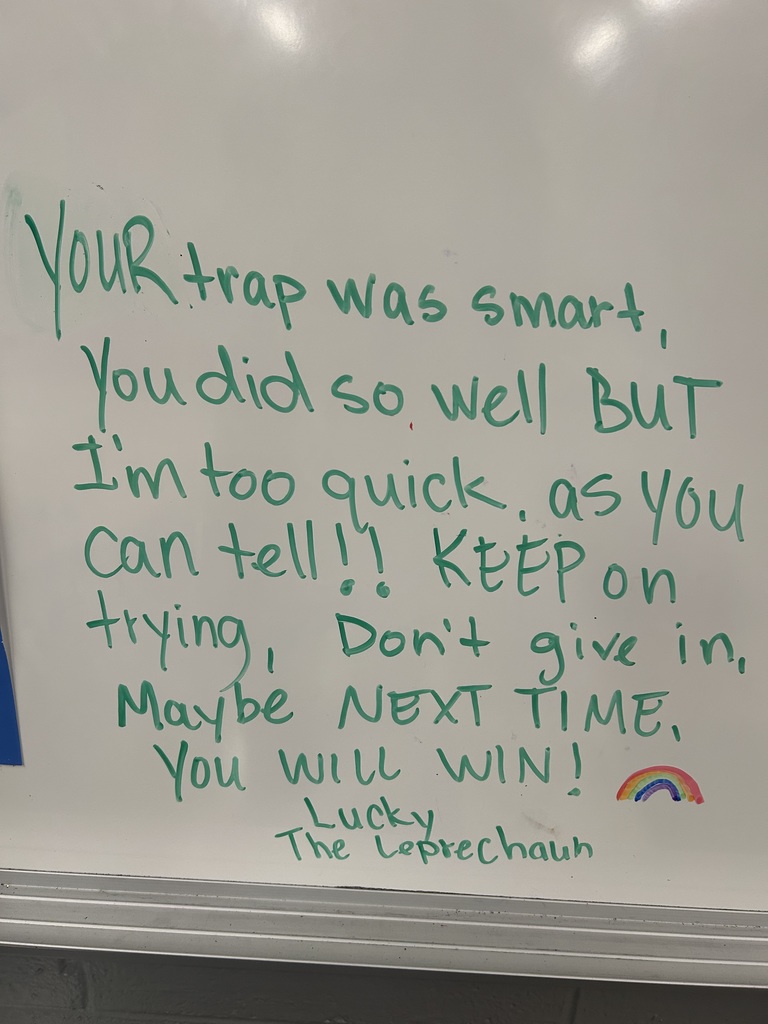 YOUR trap was smart,
You did so well BUT
I'm too quick, as you
can tell!! KEEP on
trying, Don't give in,
Maybe NEXT TIME,
You WILL WIN!
Lucky
The Leprechaun